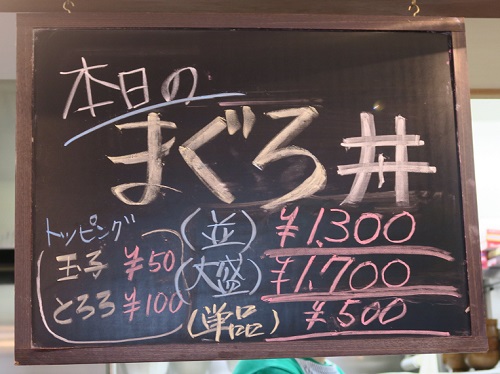 本日の
まぐろ丼
トッピング
玉子 ¥50
とろろ ¥100
(並) ¥1,300
(大盛) ¥1,700
(単品) ¥500